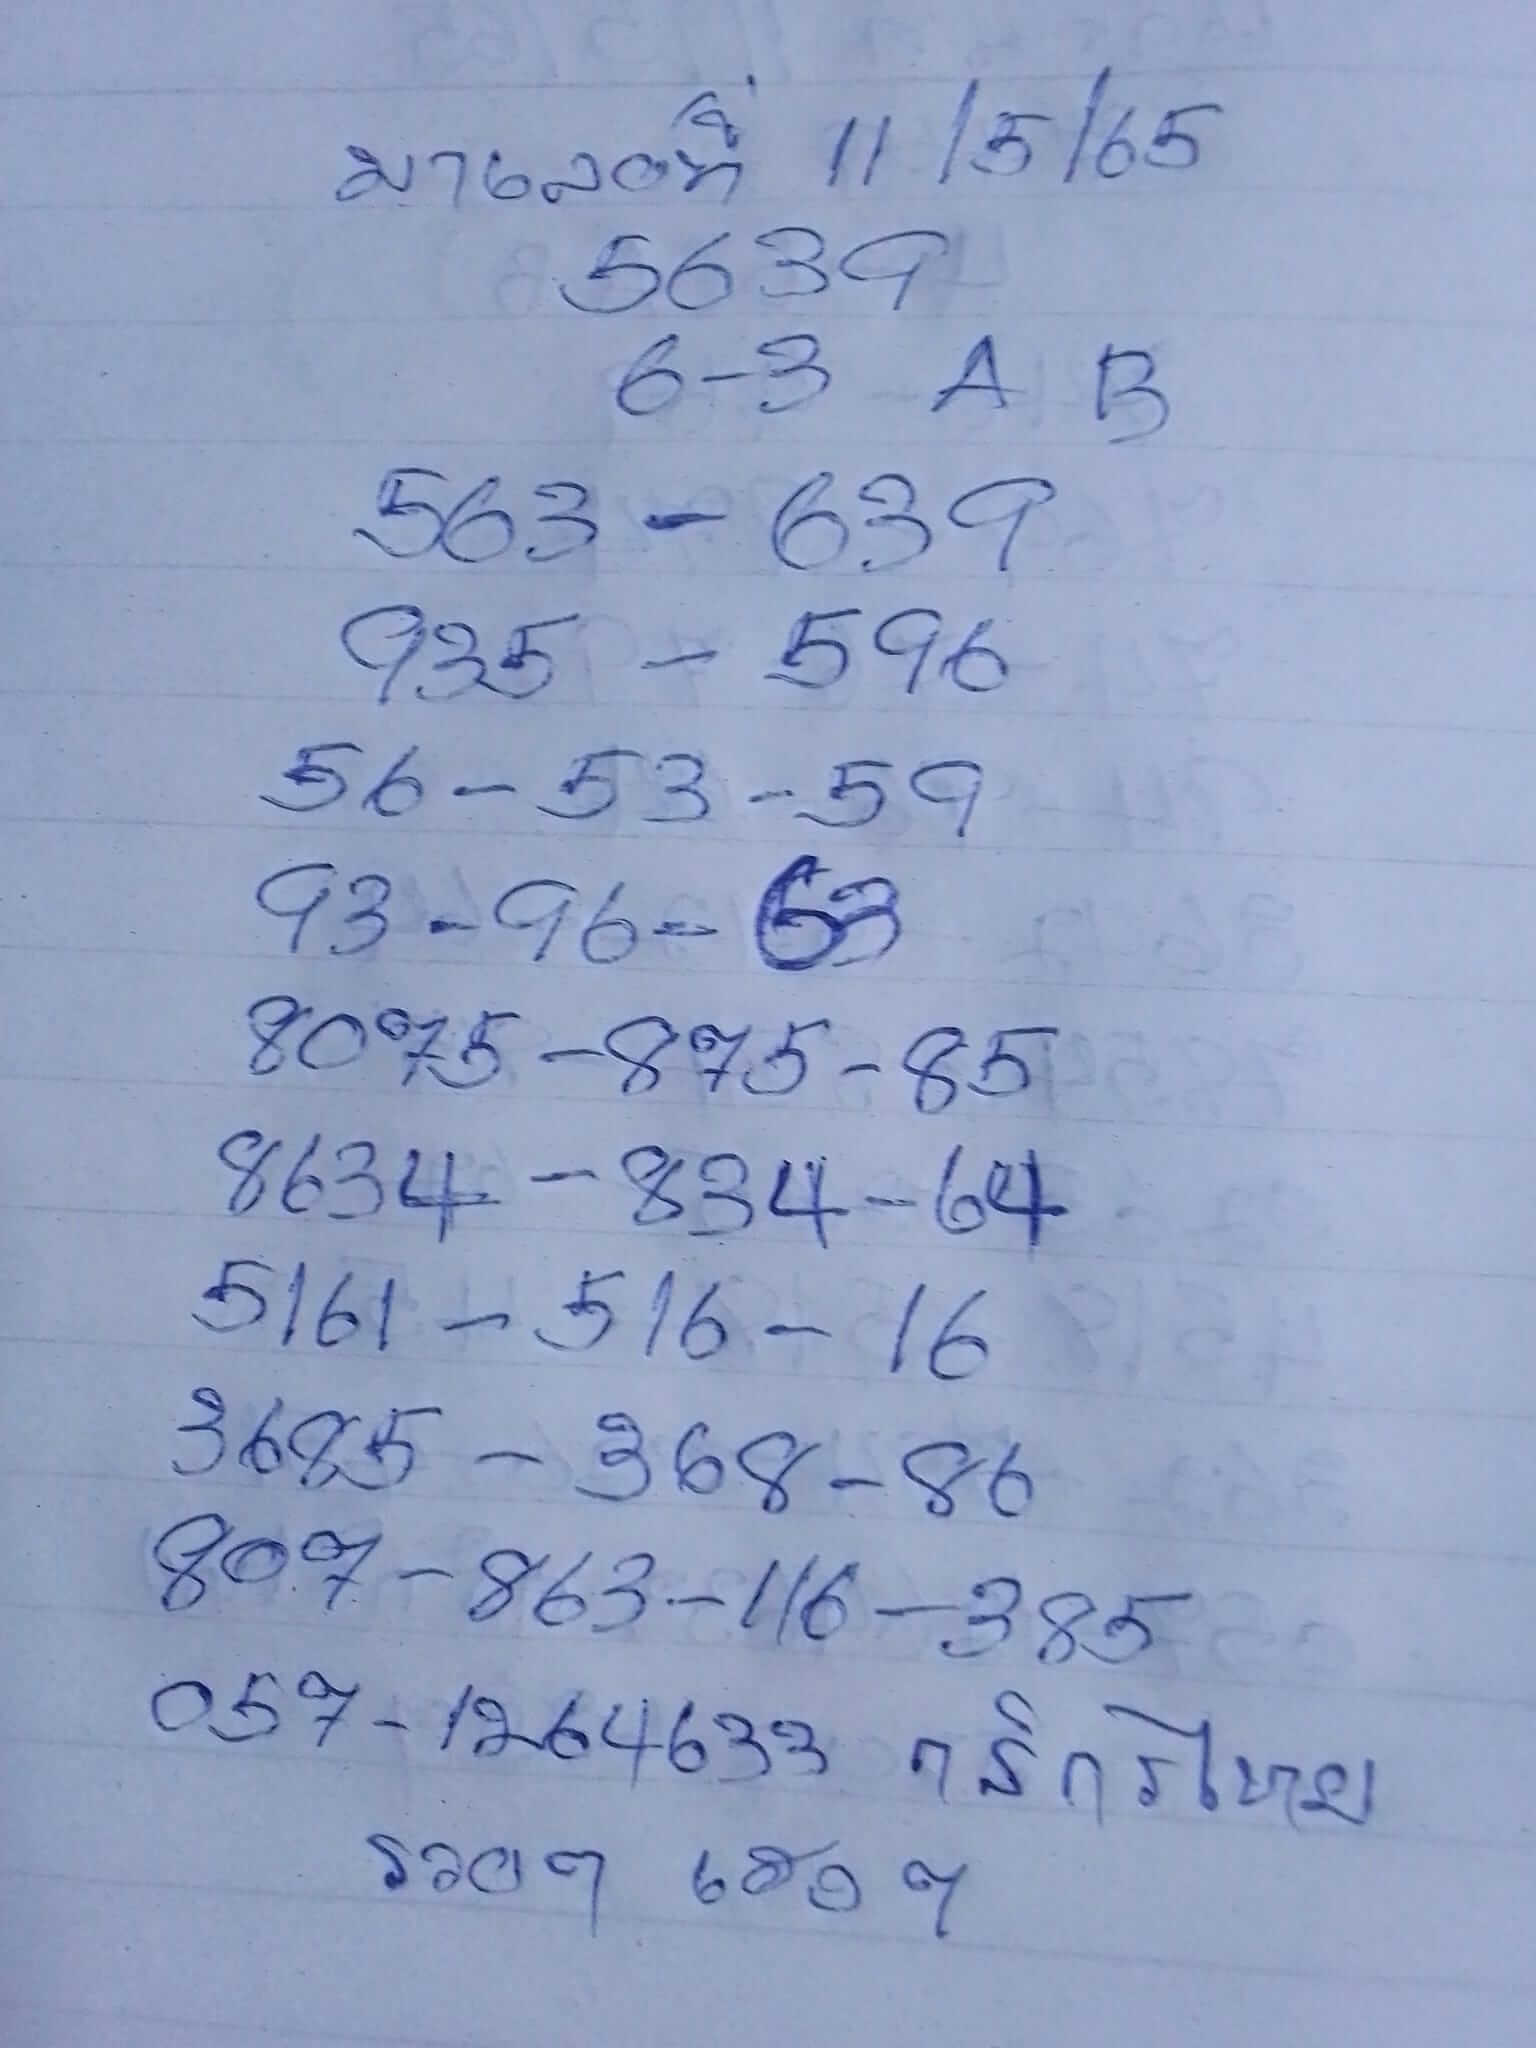 มาเลย์ที่ 11/5/65
5639
6-3 A B
563-639
935-596
56-53-59
93-96-63
8075-875-85
8634-834-64
5161-516-16
3685-368-86
807-863-116-385
057-1264633 กสิกรไทย
รวยๆ เฮงๆ